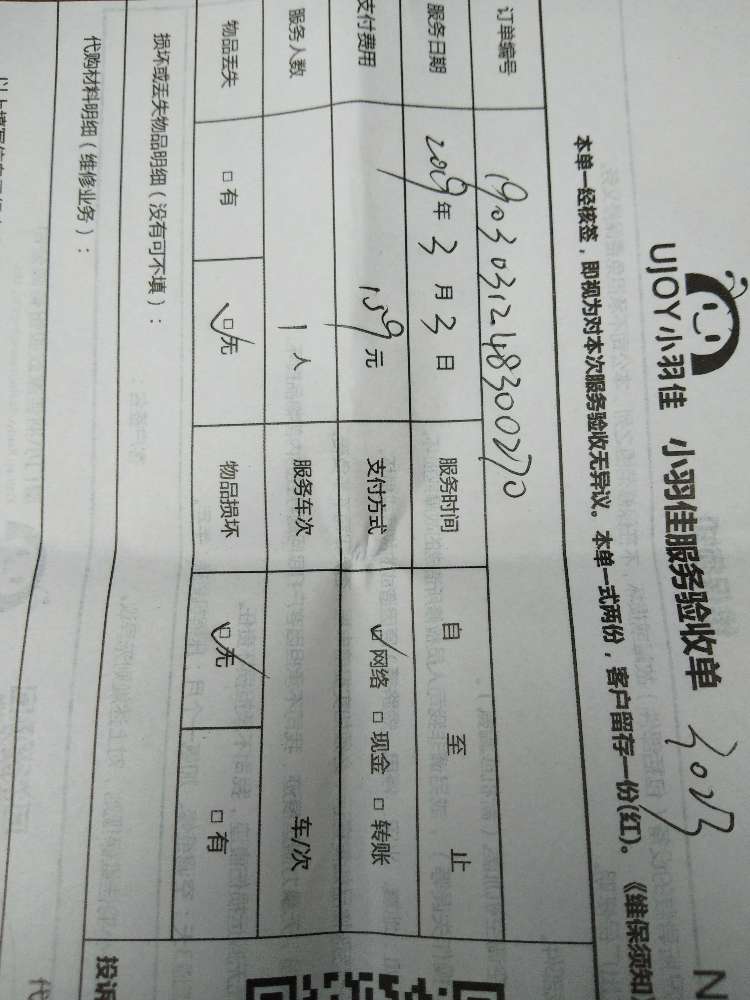 UJOY小羽佳 小羽佳服务验收单
本单一经核签，即视为对本次服务验收无异议。本单一式两份，客户留存一份(红)。《维保须知
订单编号 1903031248300270
服务日期 2019年3月3日 服务时间 自 至 止
支付费用 159元 支付方式 ☑网络 □现金 □转账
服务人数 1人 服务车次 车/次
物品丢失 □有 ☑无 物品损坏 ☑无 □有
损坏或丢失物品明细（没有可不填）：
代购材料明细（维修业务）：
投诉